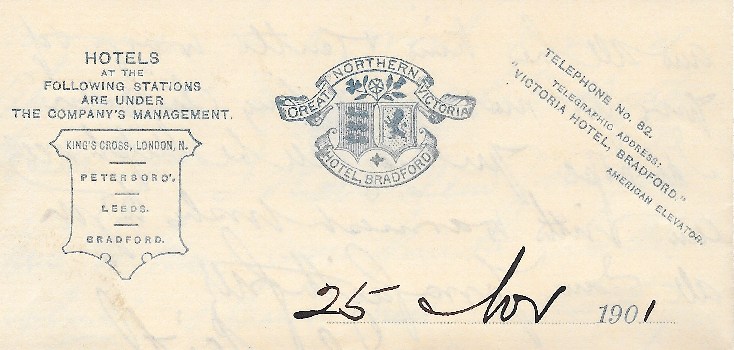 HOTELS
AT THE
FOLLOWING STATIONS
ARE UNDER
THE COMPANY'S MANAGEMENT.
KING'S CROSS, LONDON, N.
PETERBORO'.
LEEDS.
BRADFORD.
GREAT NORTHERN VICTORIA
HOTEL, BRADFORD
TELEPHONE No. 82.
TELEGRAPHIC ADDRESS:
"VICTORIA HOTEL, BRADFORD."
AMERICAN ELEVATOR.
25 Nov 1901